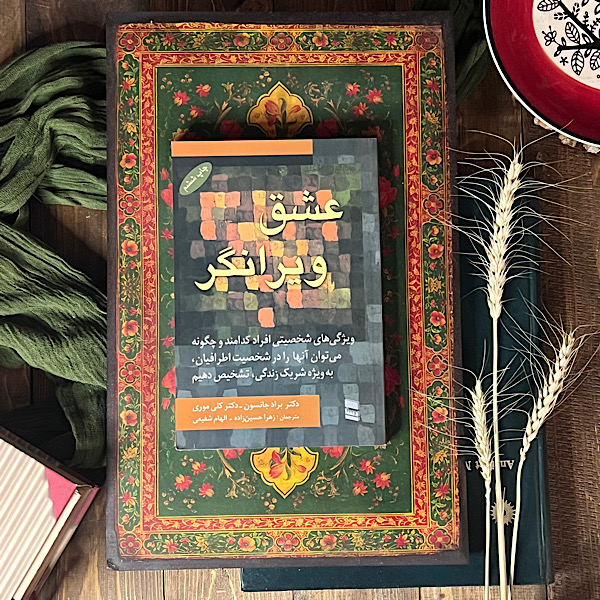 چاپ ششم
عشق
ویرانگر
ویژگی‌های شخصیتی افراد کدامند و چگونه
می‌توان آنها را در شخصیت اطرافیان،
به ویژه شریک زندگی، تشخیص دهیم
دکتر براد جانسون - دکتر کلی موری
مترجمان: زهرا حسین‌زاده - الهام شفیعی